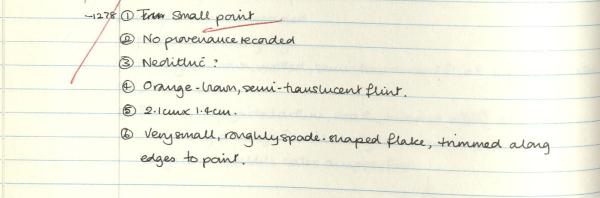 -1278 ① Small point
② No provenance recorded
③ Neolithic?
④ Orange-brown, semi-translucent flint.
⑤ 2.1cm x 1.4cm.
⑥ Very small, roughly spade-shaped flake, trimmed along
edges to point.